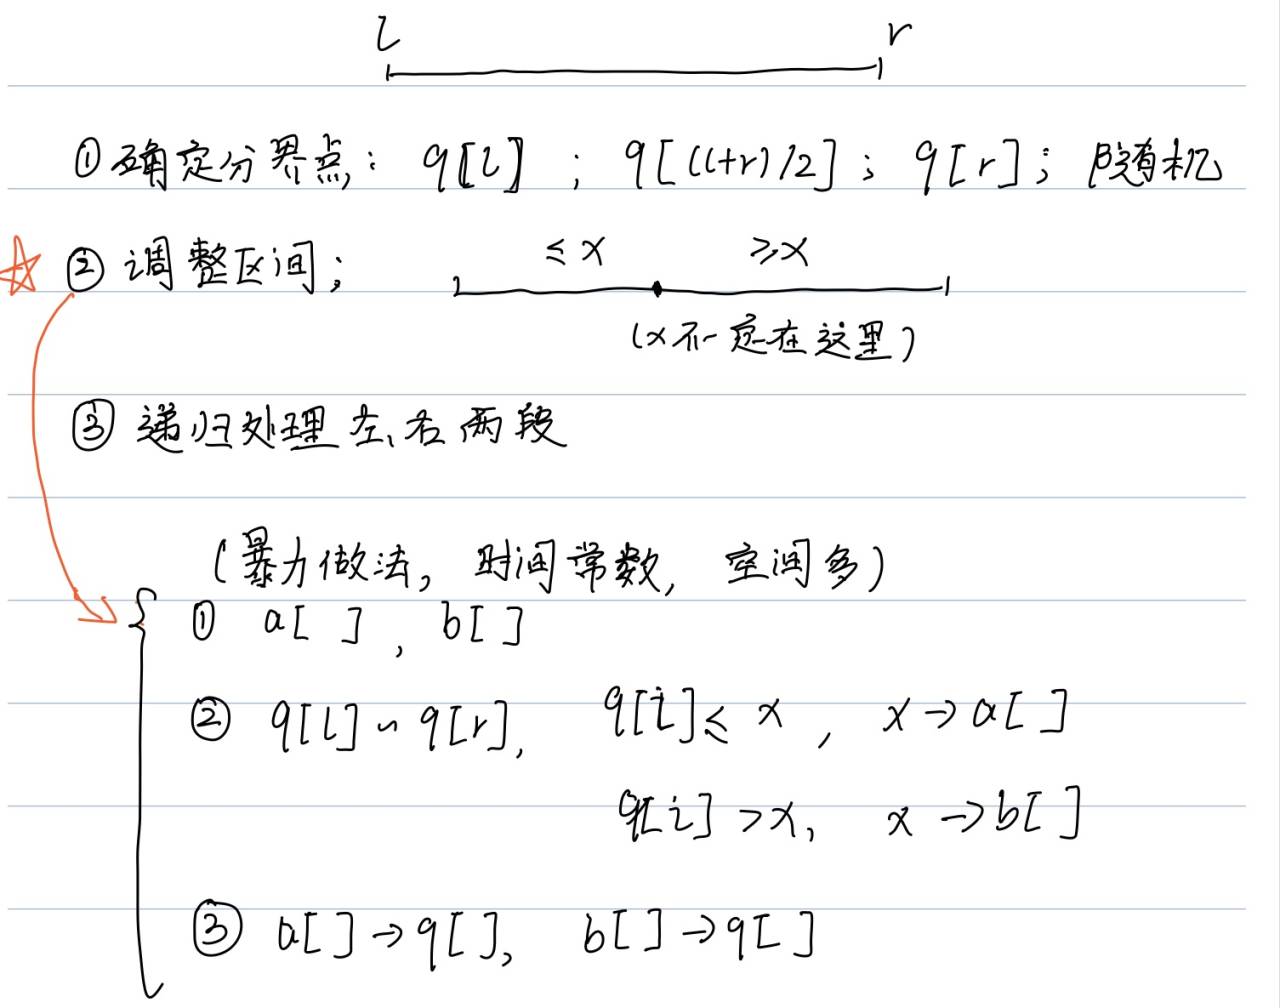 l r
①确定分界点：q[l] ; q[(l+r)/2]; q[r]; 随机
☆ ②调整区间; ≤x ≥x
(x不一定在这里)
③递归处理左、右两段
(暴力做法, 时间常数, 空间多)
① a[ ], b[ ]
② q[l]~q[r], q[i]≤x, x→a[ ]
q[i]>x, x→b[ ]
③ a[ ]→q[ ], b[ ]→q[ ]